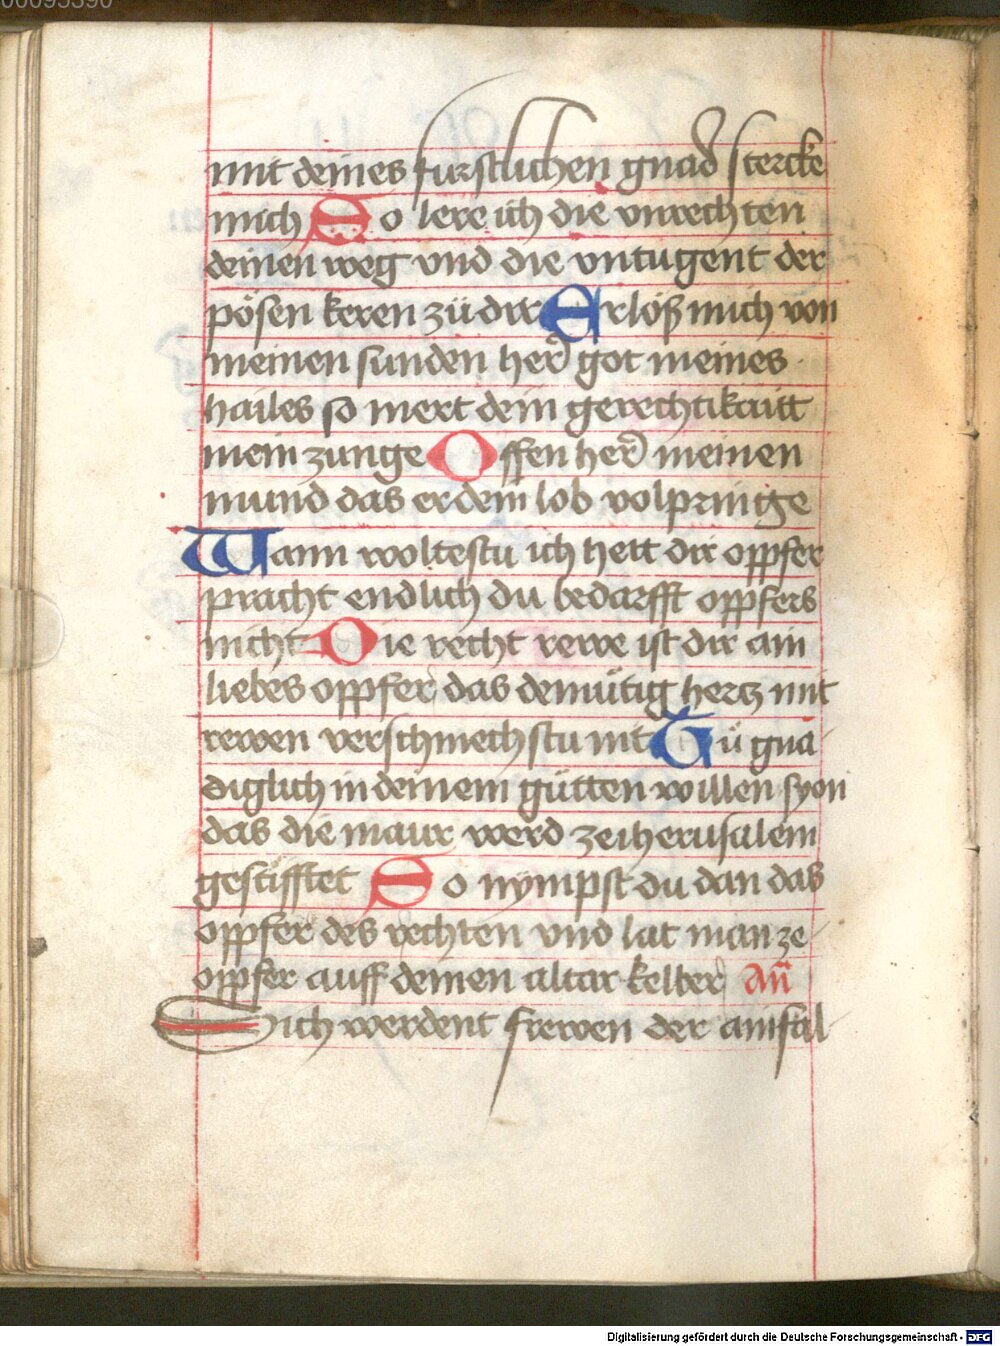 00095390
mit deines furstlichen gnad stercke
mich So lere ich die vnrechten
deinen weg vnd die vntugent der
pösen keren zü dir Erlöß mich von
meinen sunden her got meines
hailes so mert dein gerechtikaitt
mein zunge Offen her meinen
mund das er dein lob volpringe
Wann woltestu ich hett dir oppfer
pracht endlich du bedarfft oppfers
nicht Die recht rewe ist dir ain
liebes oppfer das demütig hercz mit
rewen verschmechstu nit Tü gna
diglich in deinem gütten willen syon
das die maur werd ze iherusalem
gestifftet So nympst du dan das
oppfer des rechten vnd lat man ze
oppfer auff deinen altar kelber An̄
Sich werdent frewen der ainfal
Digitalisierung gefördert durch die Deutsche Forschungsgemeinschaft - DFG